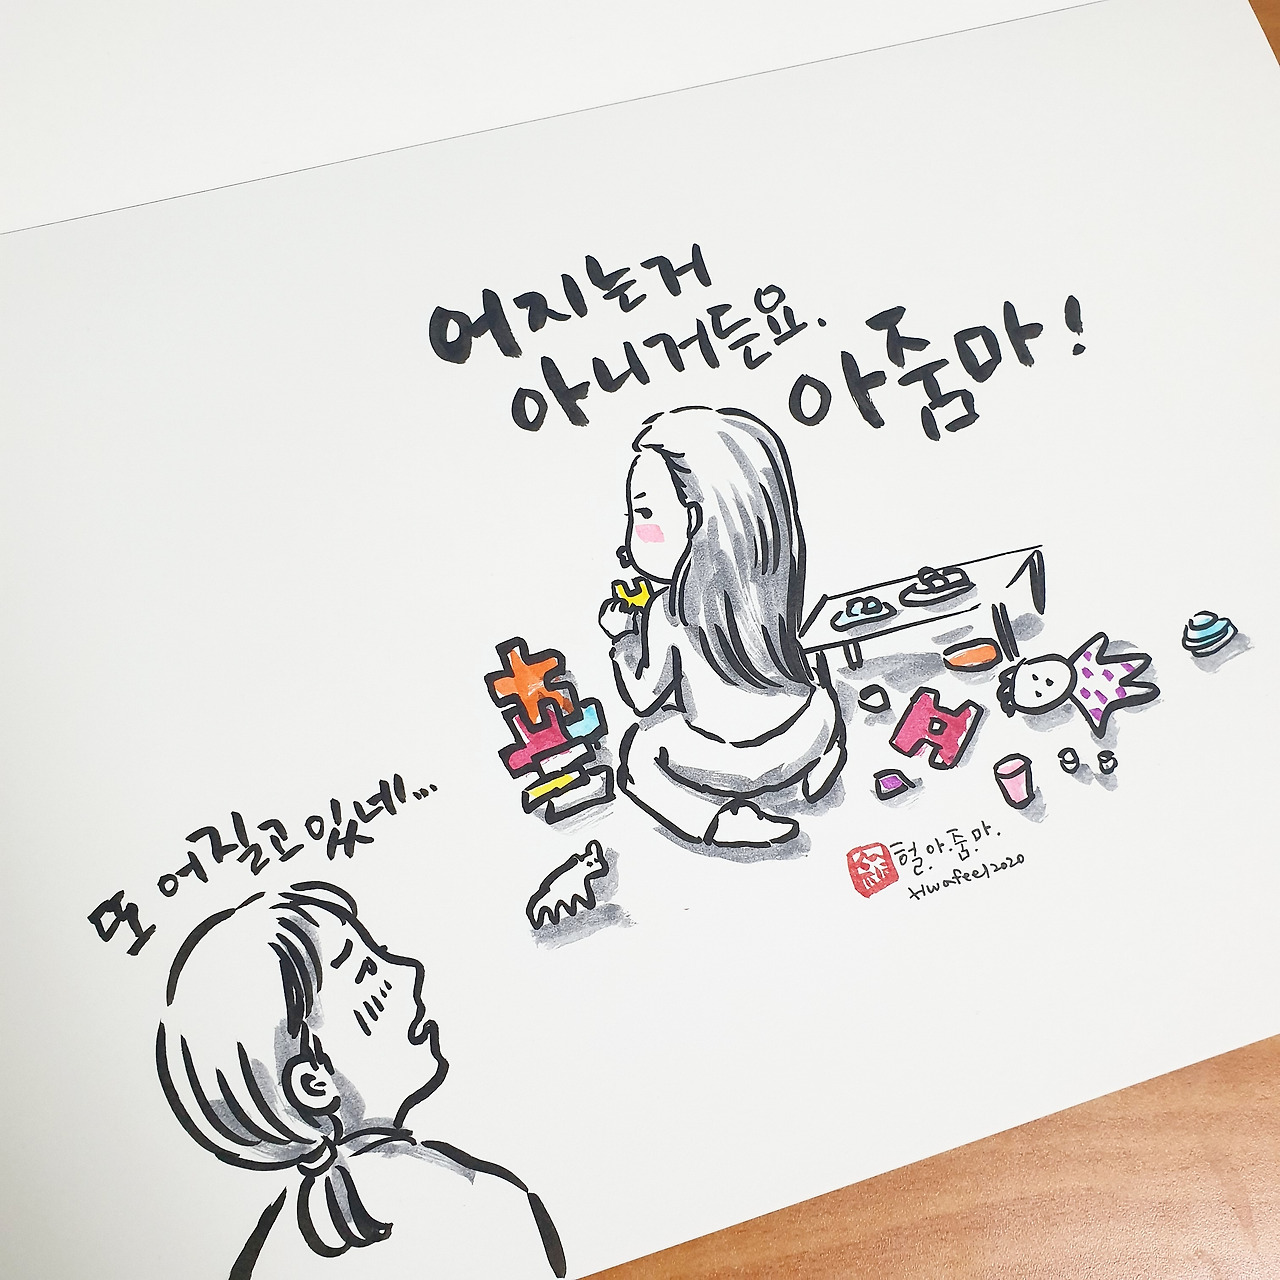 어지는거
아니거든요.
아줌마!
또 어질고 있네...
헐.아.줌.마.
Hwafeel 2020